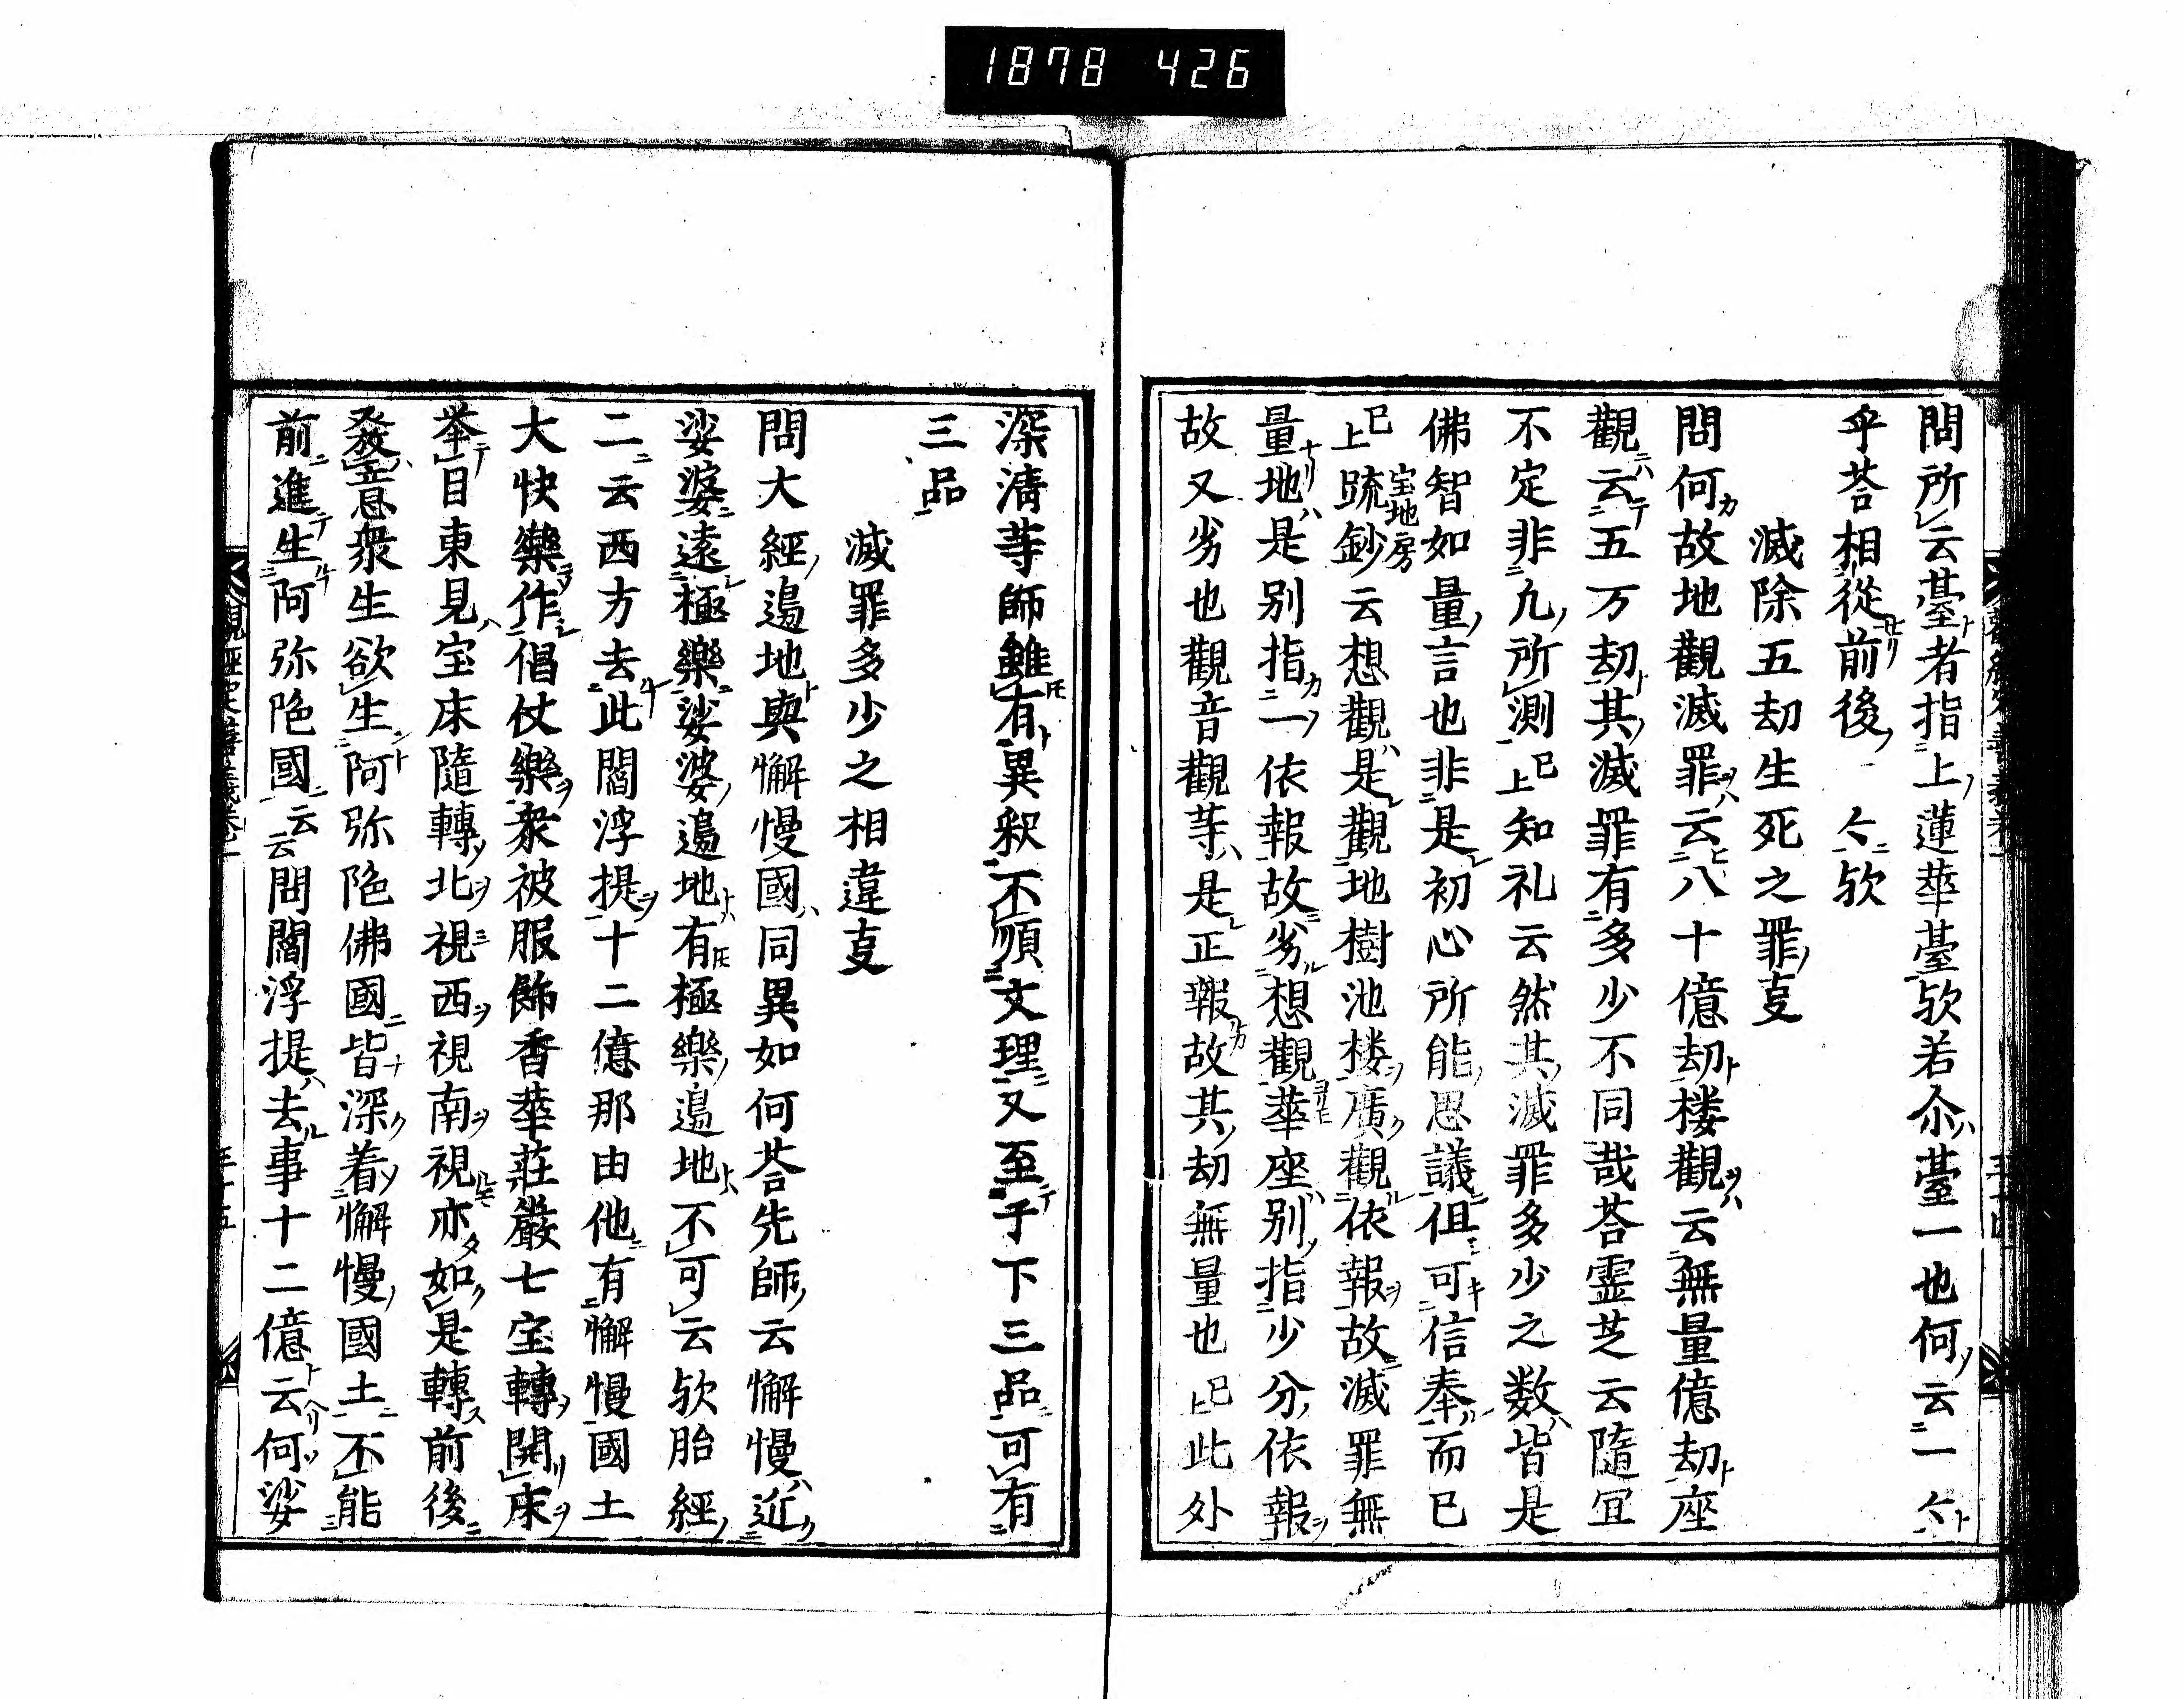 1878 426
問所云䑓者指上蓮華䑓欤若尒䑓一也何云一亽
乎荅相從前後亽欤
滅除五劫生死之罪㕝
問何故地觀滅罪云八十億劫楼觀云無量億劫座
觀云五万劫其滅罪有多少不同哉荅霊芝云隨冝
不定非凢所測已上知礼云然其滅罪多少之数皆是
佛智如量言也非是初心所能思議但可信奉而已
已上䟽鈔云想觀是觀地樹池楼廣觀依報故滅罪無
宝地房
量地是别指一依報故劣想觀華座别指少分依報
故又劣也觀音觀等是正報故其劫無量也已上此処
深淸等師雖有異釈不順文理又至于下三品可有
三品
滅罪多少之相違㕝
問大經邉地與懈慢國同異如何荅先師云懈慢近
娑婆遠極樂娑婆邉地有極樂邉地不可云欤胎經
二云西方去此閻浮提十二億那由他有懈慢國土
大快樂作倡伎樂衆被服飾香華莊嚴七宝轉開床
举目東見宝床隨轉北視西視南視亦如是轉前後
發意衆生欲生阿弥陁佛國皆深着懈慢國土不能
前進生阿弥陁國云云問閻浮提去事十二億云何娑